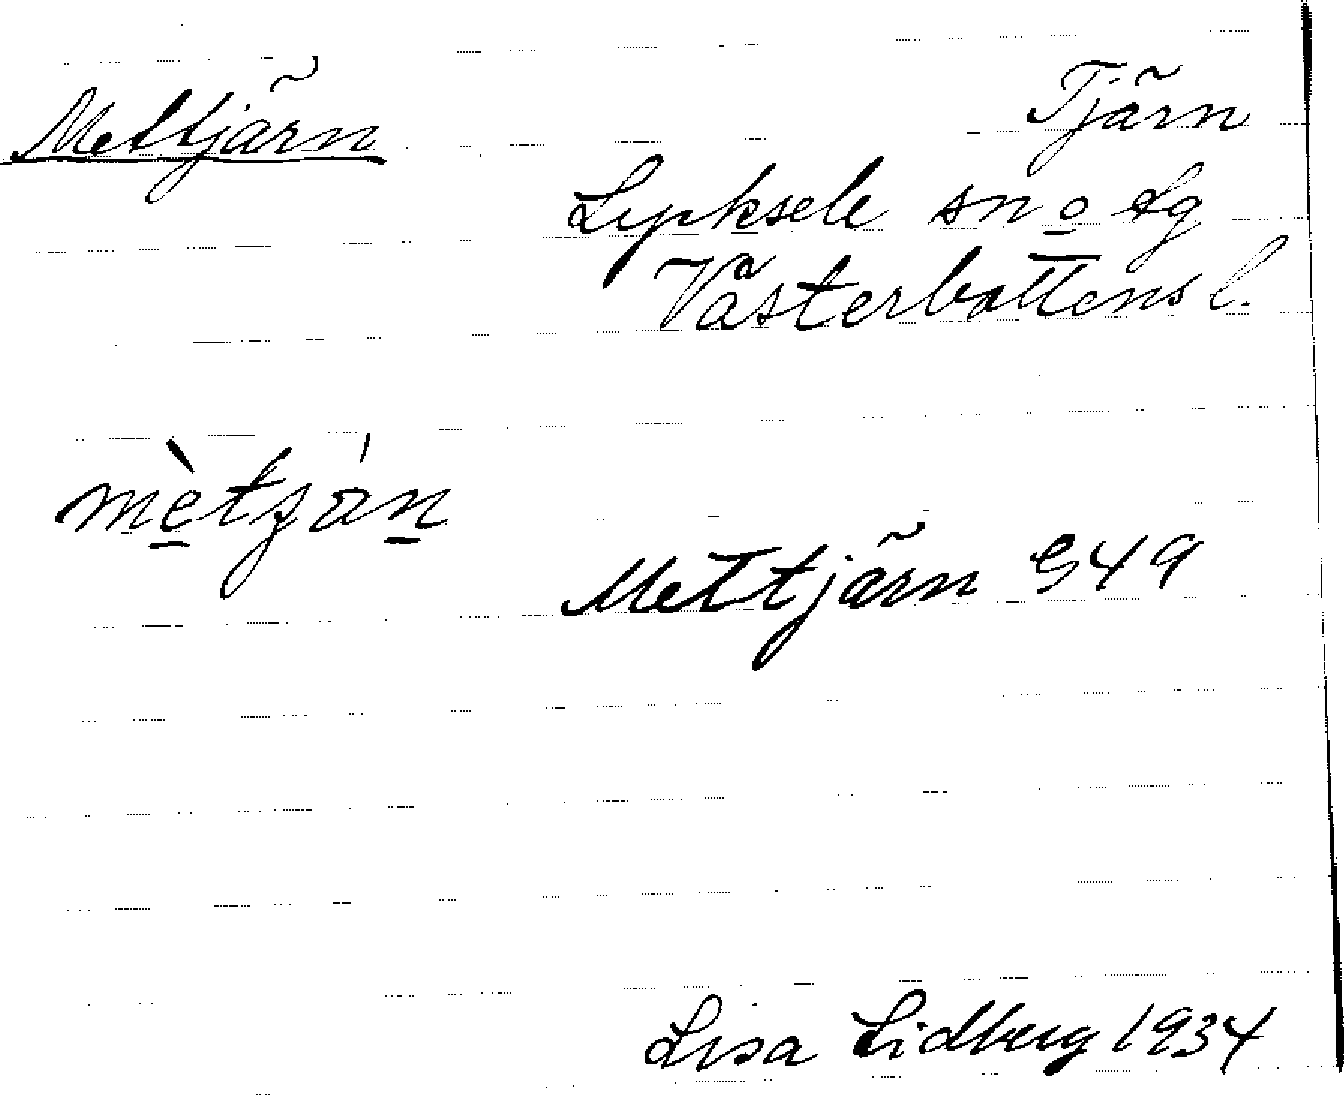 Mettjärn
Tjärn
Lycksele sn o Lg
Västerbottens l.
mètján
Mettjärn G49
Lisa Lidberg 1934